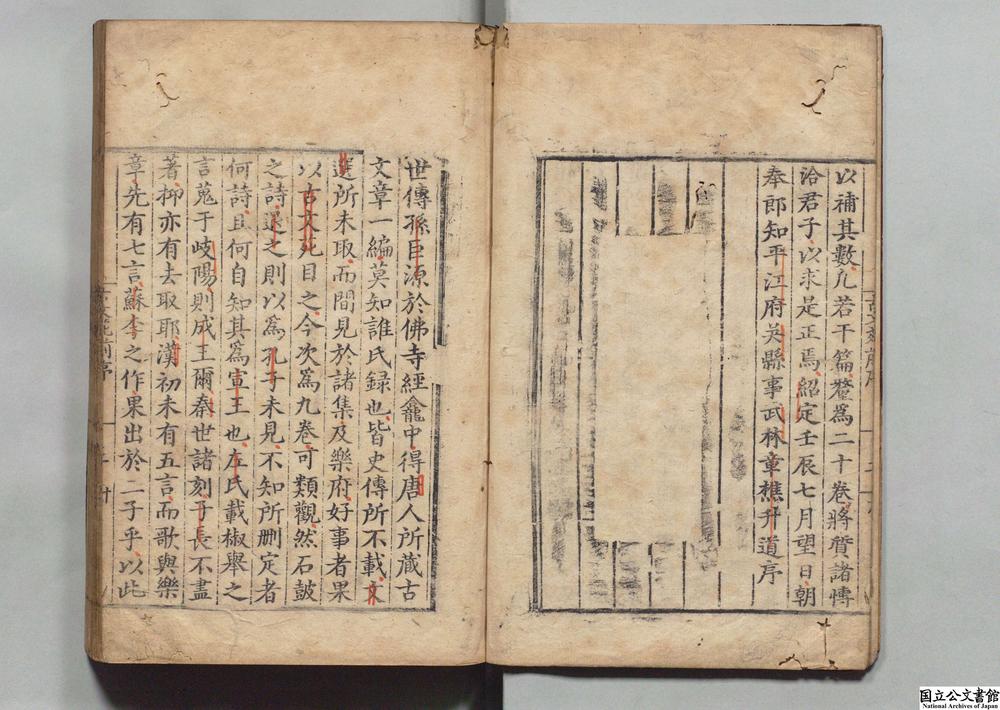 以補其數凡若干篇釐爲二十卷將質諸愽
洽君子以求是正焉紹定壬辰七月望日朝
奉郎知平江府吳縣事武林章樵升道序
世傳孫巨源於佛寺經龕中得唐人所藏古
文章一編莫知誰氏録也皆史傳所不載文
選所未取而間見於諸集及樂府好事者果
以古文苑目之今次爲九卷可類觀然石皷
之詩退之則以爲孔子未見不知所刪定者
何詩且何自知其爲宣王也左氏載椒舉之
言蒐于岐陽則成王爾秦世諸刻子長不盡
著抑亦有去取耶漢初未有五言而歌與樂
章先有七言蘇李之作果出於二子乎以此
国立公文書館
National Archives of Japan